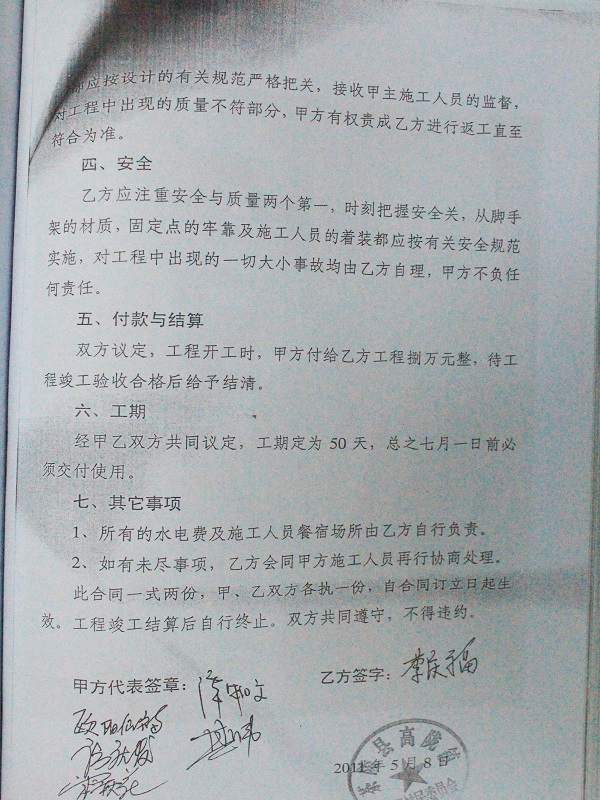 都应按设计的有关规范严格把关，接收甲主施工人员的监督，
对工程中出现的质量不符部分，甲方有权责成乙方进行返工直至
符合为准。
四、安全
乙方应注重安全与质量两个第一，时刻把握安全关，从脚手
架的材质，固定点的牢靠及施工人员的着装都应按有关安全规范
实施，对工程中出现的一切大小事故均由乙方自理，甲方不负任
何责任。
五、付款与结算
双方议定，工程开工时，甲方付给乙方工程捌万元整，待工
程竣工验收合格后给予结清。
六、工期
经甲乙双方共同议定，工期定为 50 天，总之七月一日前必
须交付使用。
七、其它事项
1、所有的水电费及施工人员餐宿场所由乙方自行负责。
2、如有未尽事项，乙方会同甲方施工人员再行协商处理。
此合同一式两份，甲、乙双方各执一份，自合同订立日起生
效。工程竣工结算后自行终止。双方共同遵守，不得违约。
甲方代表签章：
乙方签字：李庆福
2011 年 5 月 8 日
县高陇
委员会